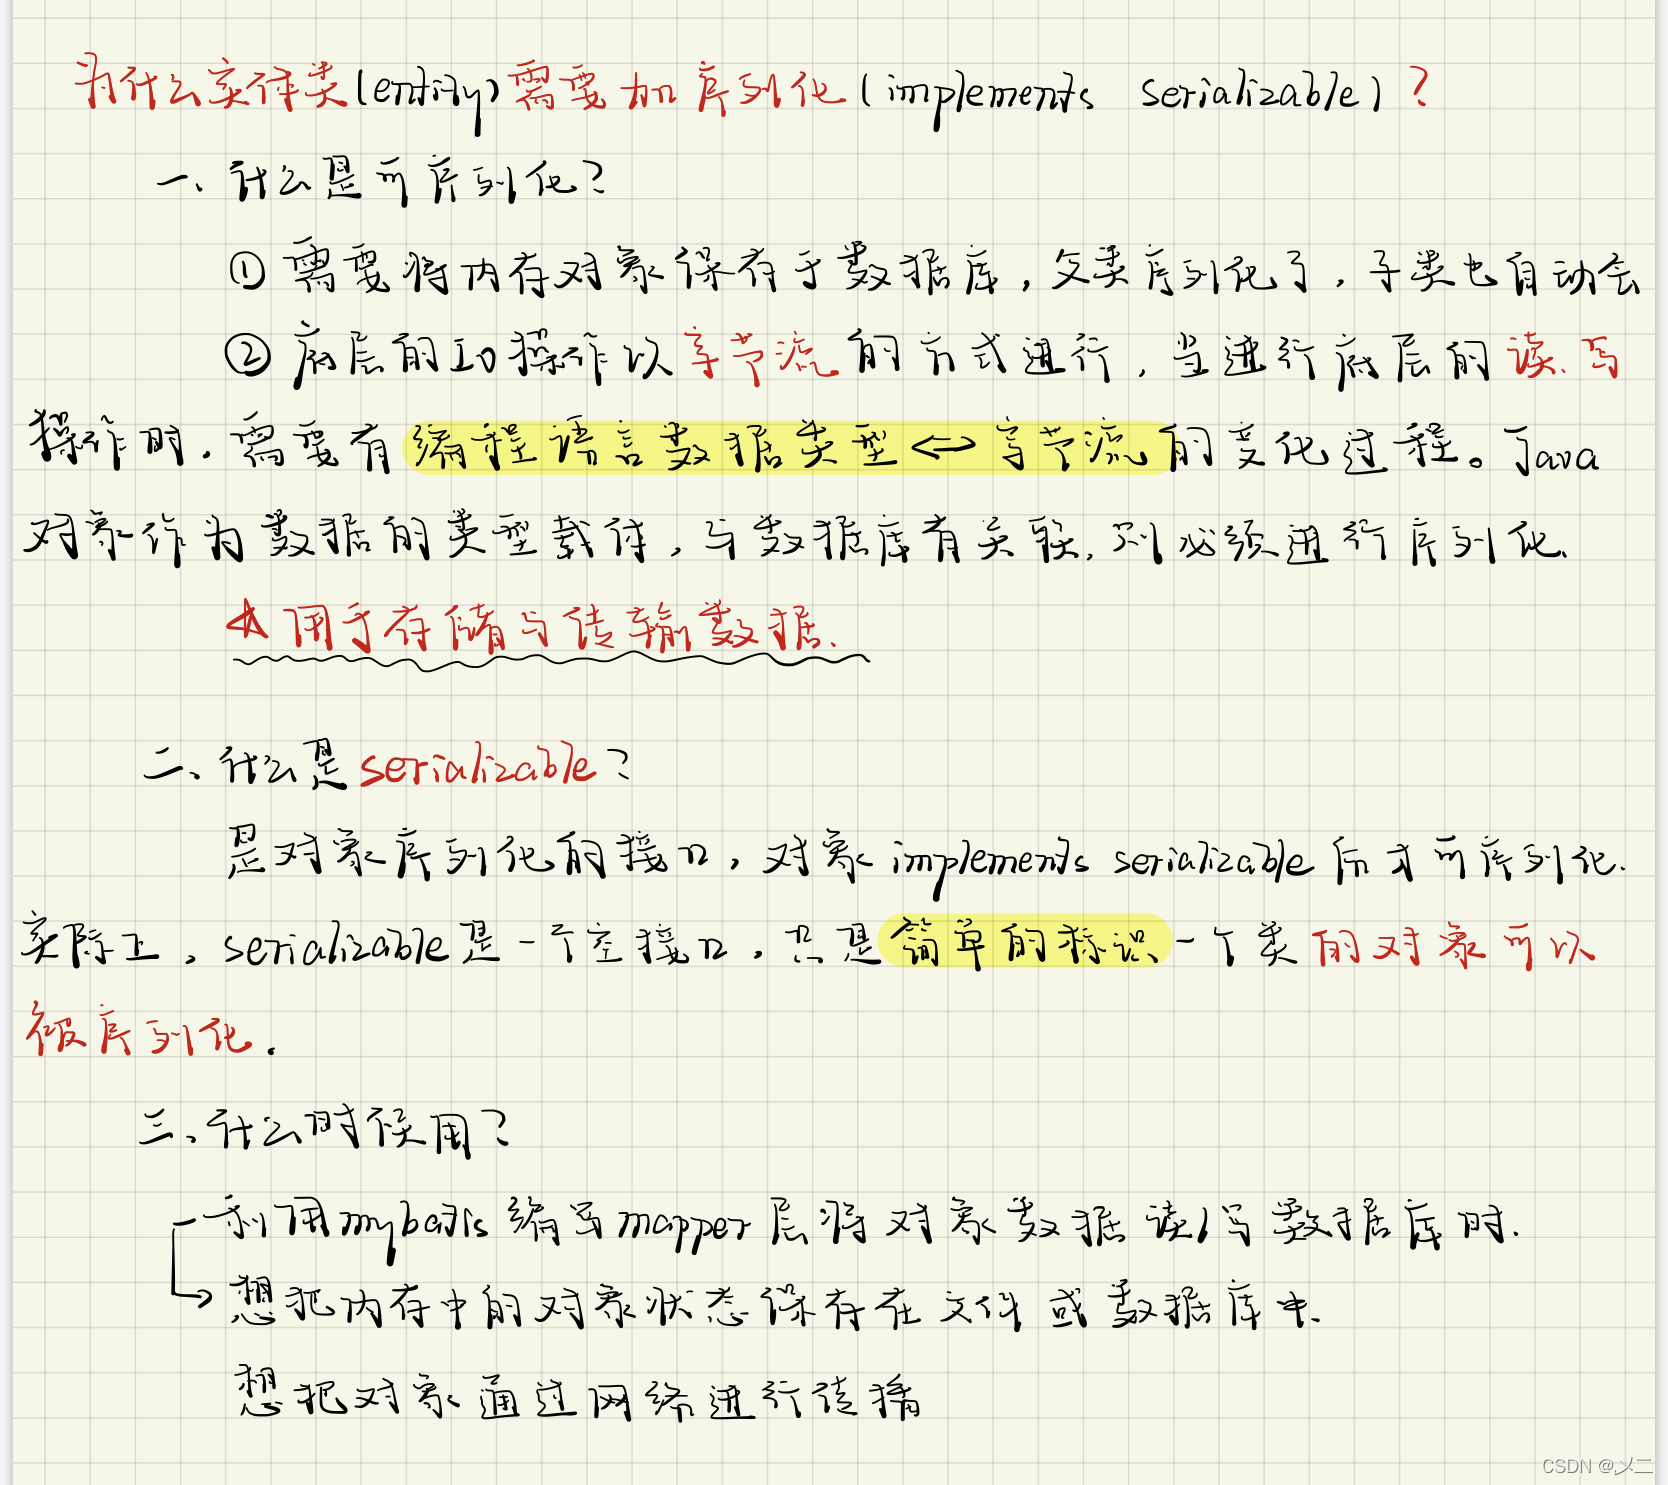 为什么实体类(entity)需要加序列化(implements serializable)?
一、什么是可序列化?
① 需要将内存对象保存于数据库,父类序列化了,子类也自动会
② 底层的IO操作以字节流的方式进行,当进行底层的读、写
操作时,需要有编程语言数据类型<->字节流的变化过程。Java
对象作为数据的类型载体,与数据库有关联,则必须进行序列化.
☆用于存储与传输数据.
二、什么是serializable?
是对象序列化的接口,对象implements serializable后才可序列化.
实际上,serializable是一个空接口,只是简单的标识一个类的对象可以
被序列化.
三、什么时候用?
利用mybatis编写mapper层将对象数据读/写数据库时.
想把内存中的对象状态保存在文件或数据库中.
想把对象通过网络进行传播
CSDN @乄二